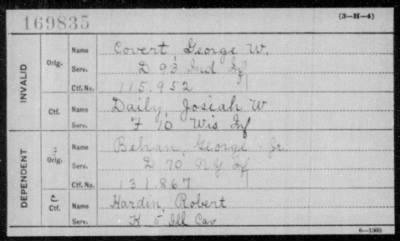 169835 (3-H-4)
INVALID
Orig. Name Covert, George W.
Serv. D 93 Ind Inf
Ctf. No. 115,952
Ctf. Name Daily, Josiah W
Serv. F 10 Wis Inf
DEPENDENT
Orig. Name Behan, George Jr.
Serv. D 70 N.Y. Inf
Ctf. No. 131.867
C Ctf. Name Hardin, Robert
Serv. K 5 Ill Cav